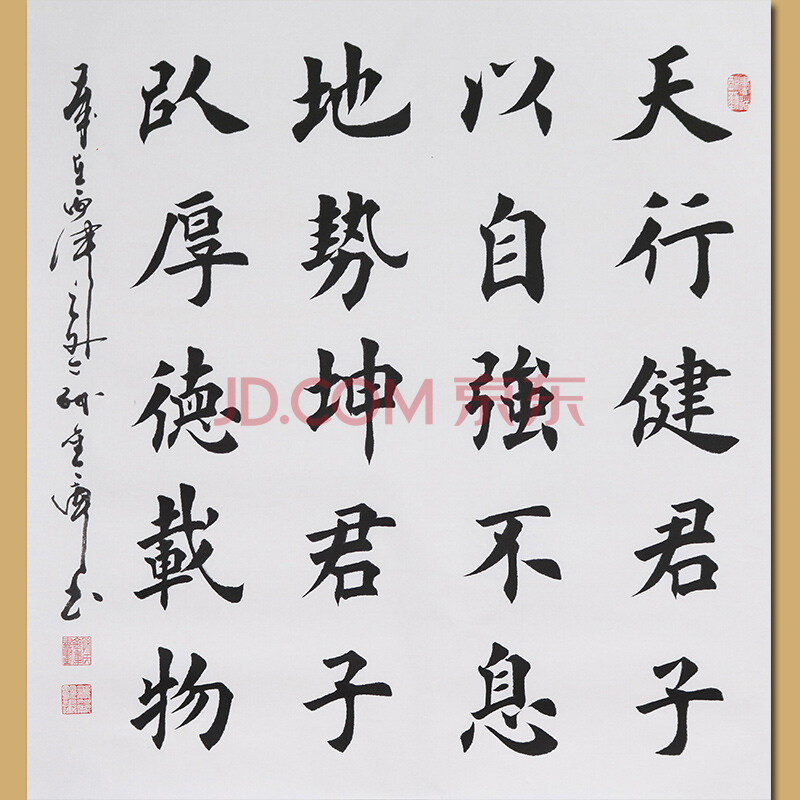 天行健君子
以自強不息
地勢坤君子
㠯厚德載物
JD.COM 京东